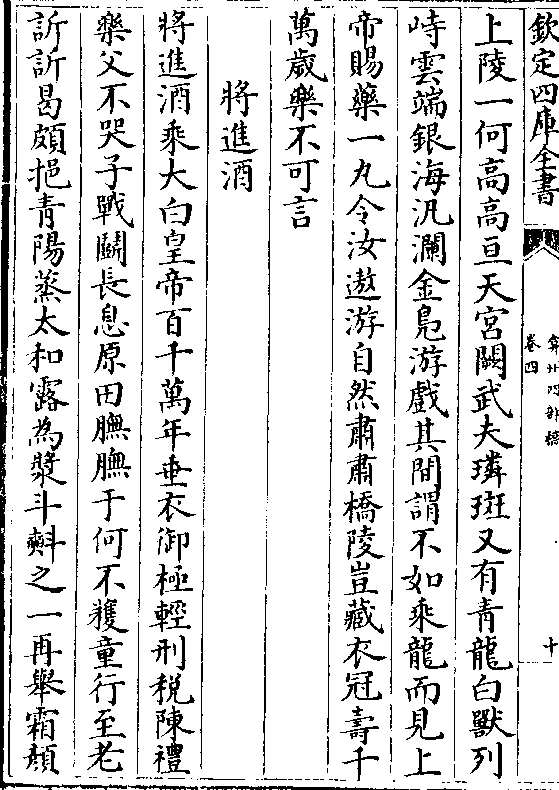 欽定四庫全書
弇州四部稿
卷四
十
上陵一何高高亘天宮闕武夫璘斑又有青龍白獸列
峙雲端銀海汎瀾金鳧游戲其間謂不如乘龍而見上
帝賜藥一丸令汝遨游自然肅肅橋陵豈藏衣冠壽千
萬歲樂不可言
將進酒
將進酒乘大白皇帝百千萬年垂衣御極輕刑稅陳禮
樂父不哭子戰鬭長息原田膴膴于何不穫童行至老
訢訢曷頗挹青陽蒸太和露為漿斗㪺之一再舉霜顏